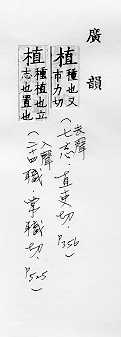 廣韻
植 種也又
市力切
去聲
(七志·直吏切, P356)
植 種植也立
志也置也
入聲
(二十四職·常職切, P525)